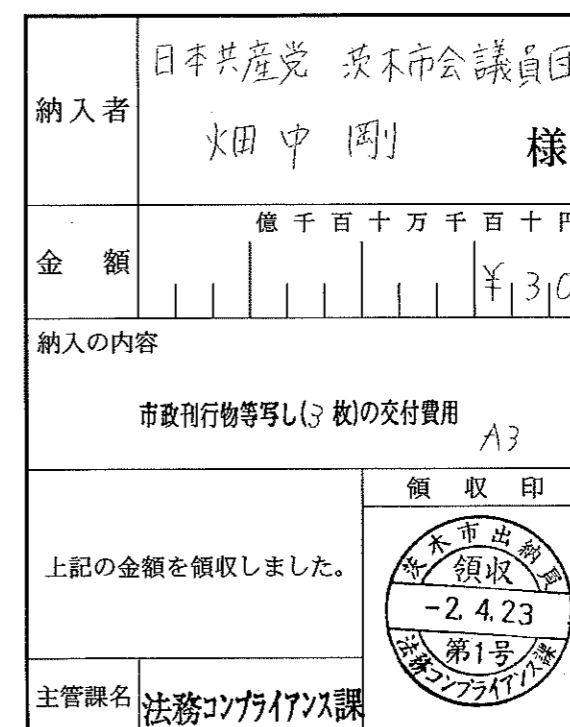 納入者
日本共産党 茨木市会議員団
畑中 剛 様
金額
億千百十万千百十円
¥30
納入の内容
市政刊行物等写し(3枚)の交付費用
A3
上記の金額を領収しました。
領収印
茨木市出納員
領収
-2.4.23
第1号
法務コンプライアンス課
主管課名 法務コンプライアンス課